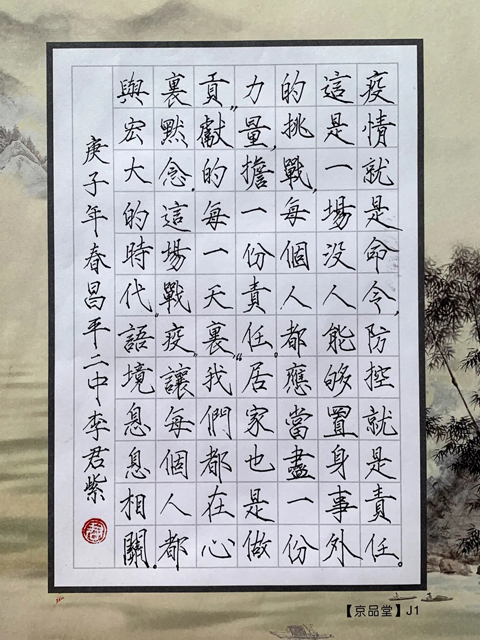 疫情就是命令,防控就是責任。
這是一場没人能够置身事外
的挑戰,每個人都應當盡一份
力量,擔一份責任。居家也是做
貢”獻的每一天裏“我們都在心
裏默念。這場戰疫”讓每個人都
與宏大的時代”語境息息相關。
庚子年春昌平二中李君紫
【京品堂】J1